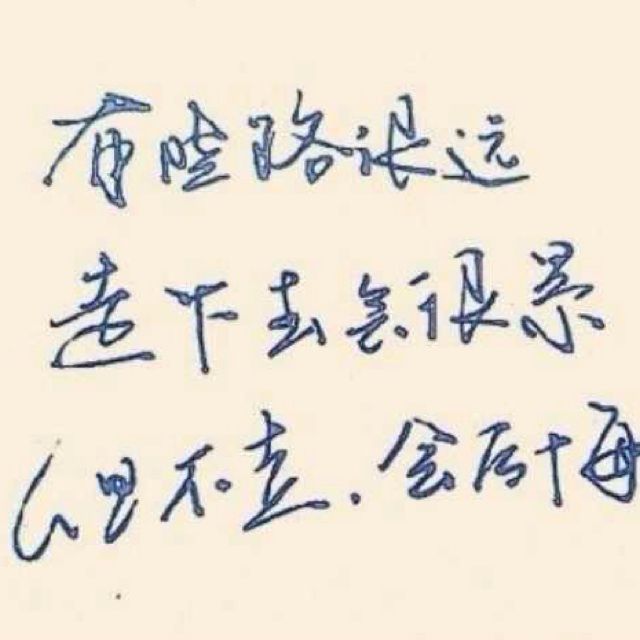 有些路很远
走下去会很累
但不走，会后悔